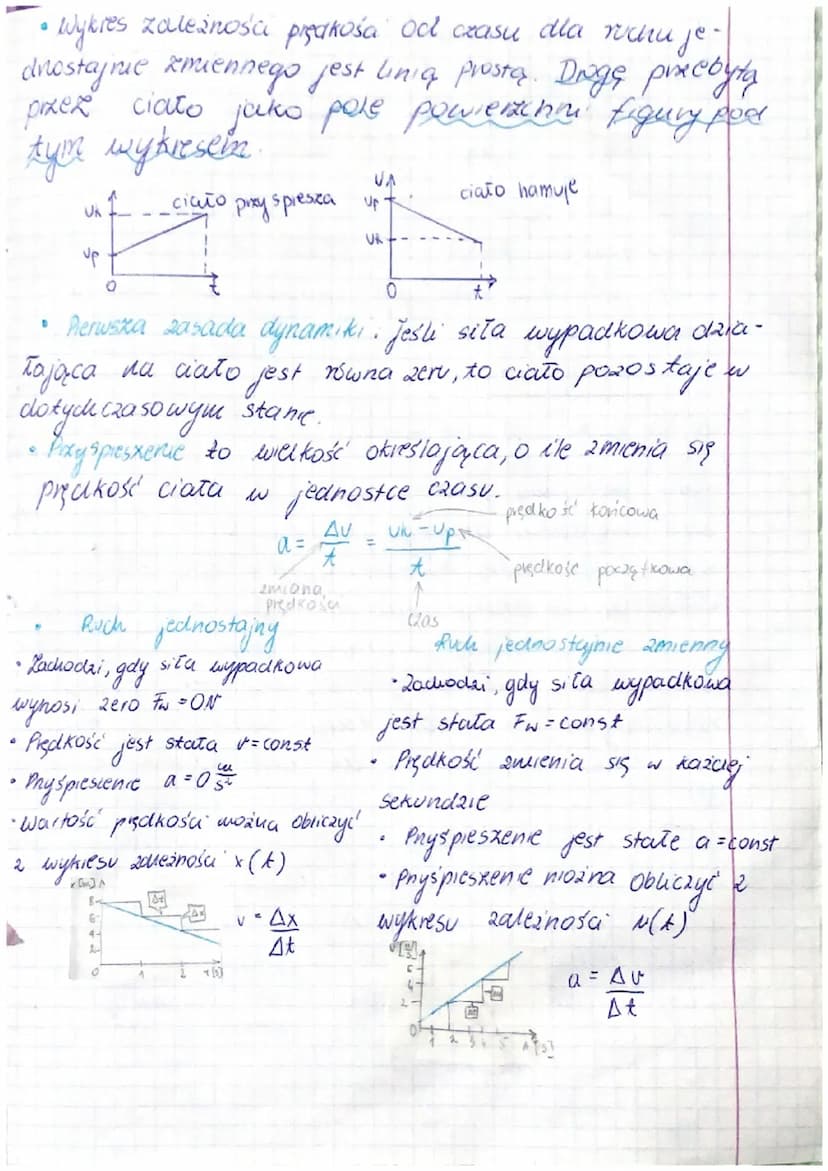 • Wykres zależności prędkości od czasu dla ruchu je-
dnostajnie zmiennego jest linią prostą. Drogę przebytą
przez ciało jako pole powierzchni figury pod
tym wykresem.
ciało przyspiesza
Vk
Vp
0
t
V
ciało hamuje
Vp
Vk
0
t
• Pierwsza zasada dynamiki. Jeśli siła wypadkowa dzia-
łająca na ciało jest równa zeru, to ciało pozostaje w
dotychczasowym stanie.
• Przyspieszenie to wielkość określająca, o ile zmienia się
prędkość ciała w jednostce czasu.
prędkość końcowa
a = Δv/t = (vk - vp)/t
prędkość początkowa
zmiana
prędkości
czas
• Ruch jednostajny
• Zachodzi, gdy siła wypadkowa
wynosi zero Fw = 0N
• Prędkość jest stała v = const
• Przyśpieszenie a = 0 m/s²
• Wartość prędkości można obliczyć
z wykresu zależności x(t)
x[m]
8
6
4
2
0
1
2
t[s]
Δt
Δx
v = Δx/Δt
Ruch jednostajnie zmienny
• Zachodzi, gdy siła wypadkowa
jest stała Fw = const
• Prędkość zmienia się w każdej
sekundzie
• Przyśpieszenie jest stałe a = const
• Przyśpieszenie można obliczyć z
wykresu zależności v(t)
v[m/s]
6
4
2
0
1 2 3 4 5 t[s]
a = Δv/Δt